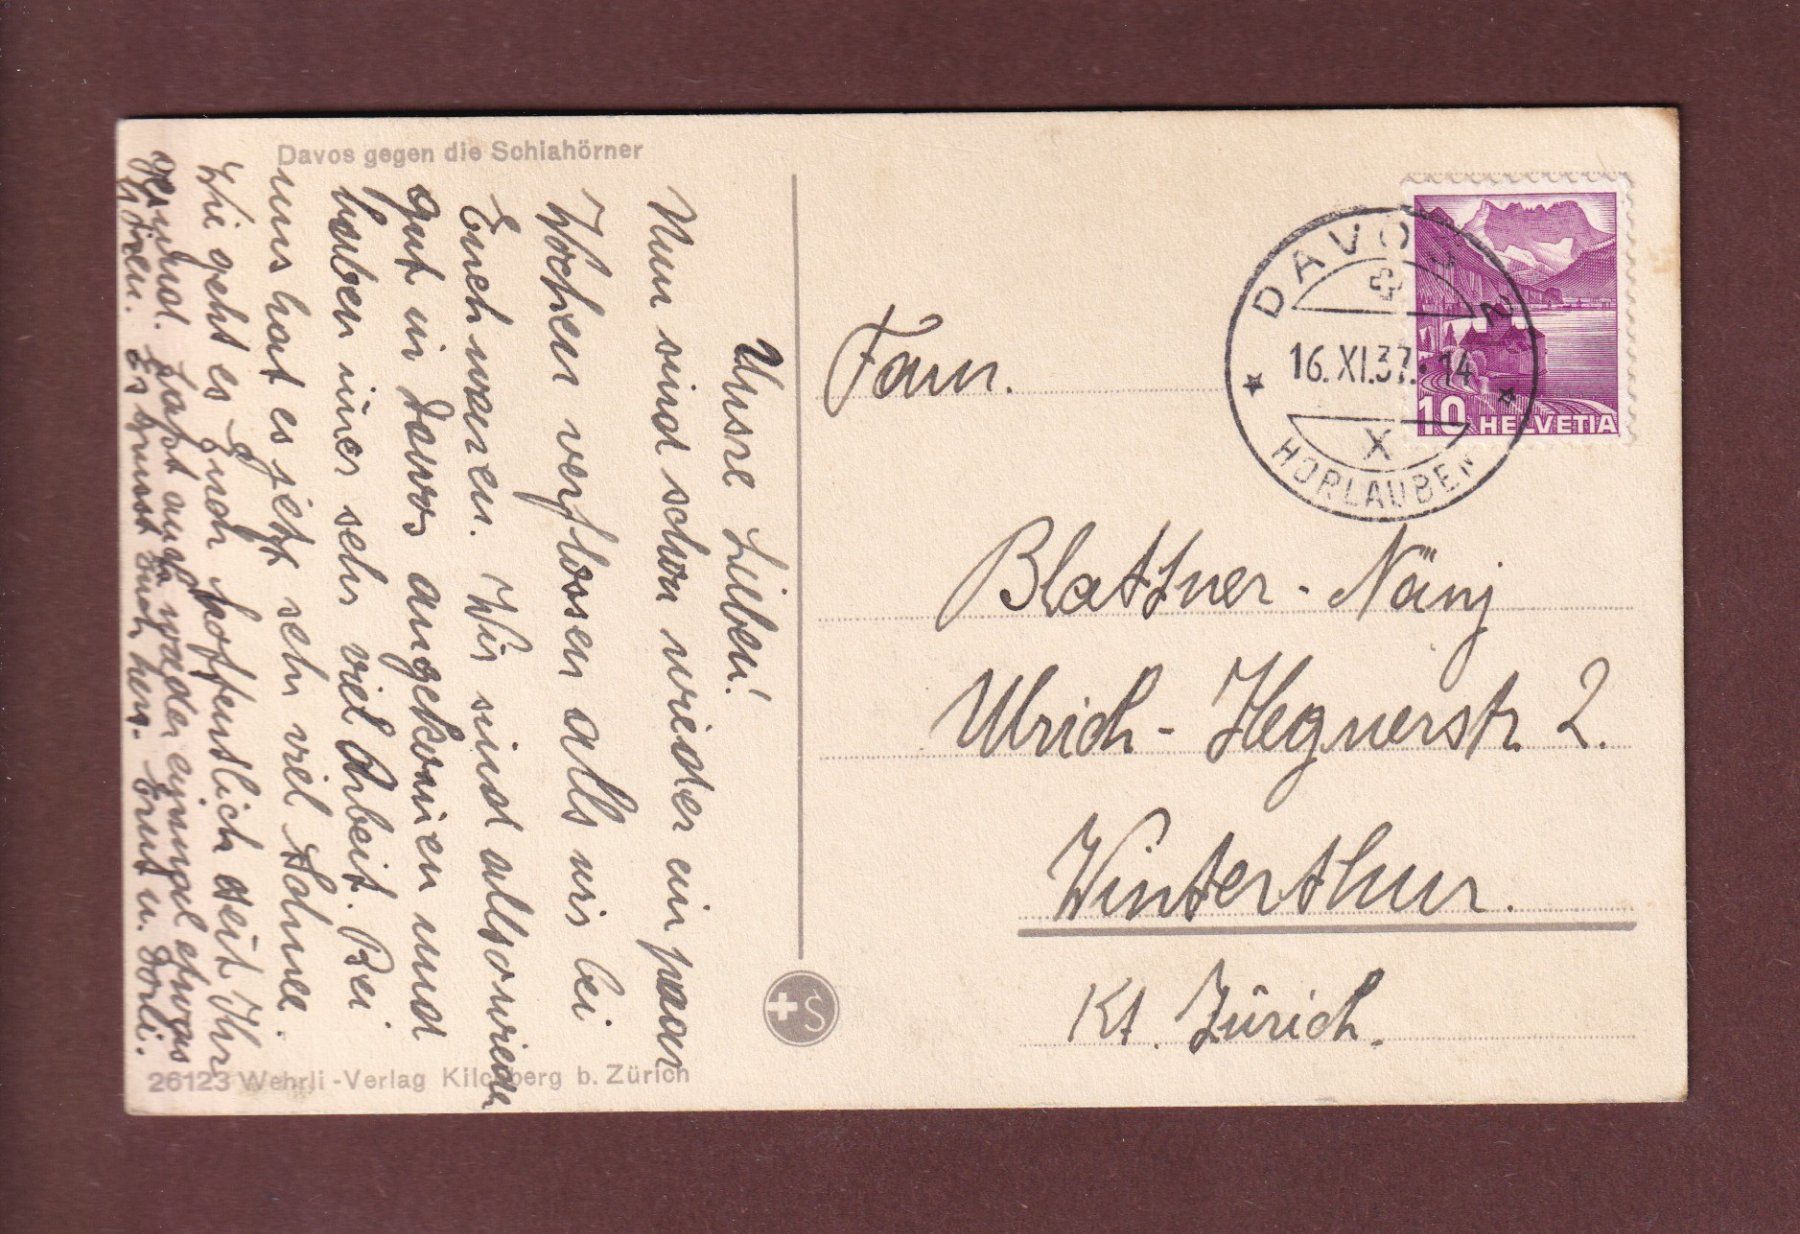 Davos gegen die Schiahörner
Unsre Lieben!
Nun sind schon wieder ein paar
Wochen verflossen alls wir bei
Euch waren. Wir sind allso wieder
gut in Davos angekomen und
haben imer sehr viel Arbeit. Bei
uns hat es jetzt sehr viel Schnee.
Wie geht es Euch hoffentlich seit Ihr
gesund. Lasst auch wieder einmal etwas
hören. Es grüsst Euch herz. Ernst u. Dorli.
26123 Wehrli-Verlag Kilchberg b. Zürich
+S
DAVOS 2
16.XI.37.-14
X
HORLAUBEN
10 HELVETIA
Fam.
Blattner - Nänj
Ulrich-Hegnerstr 2.
Winterthur.
Kt. Zürich.